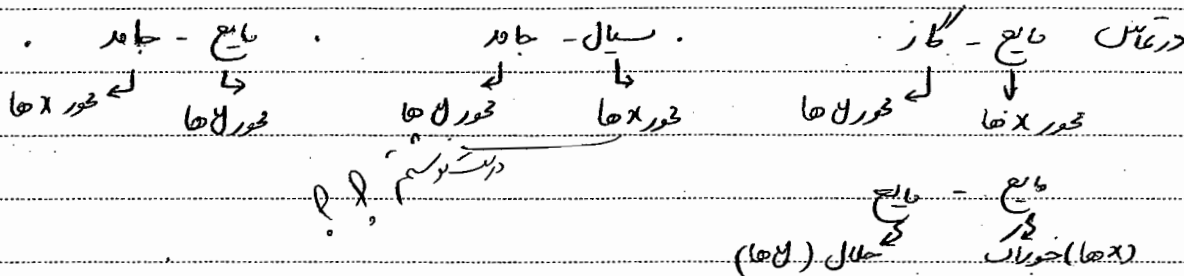 درتماس مایع - گاز . سیال - جامد . مایع - جامد .
محور x ها محور y ها محور x ها محور y ها محور y ها محور x ها
درست نوشتم ؟ ؟
مایع - مایع
(x ها) خوراک حلال (y ها)